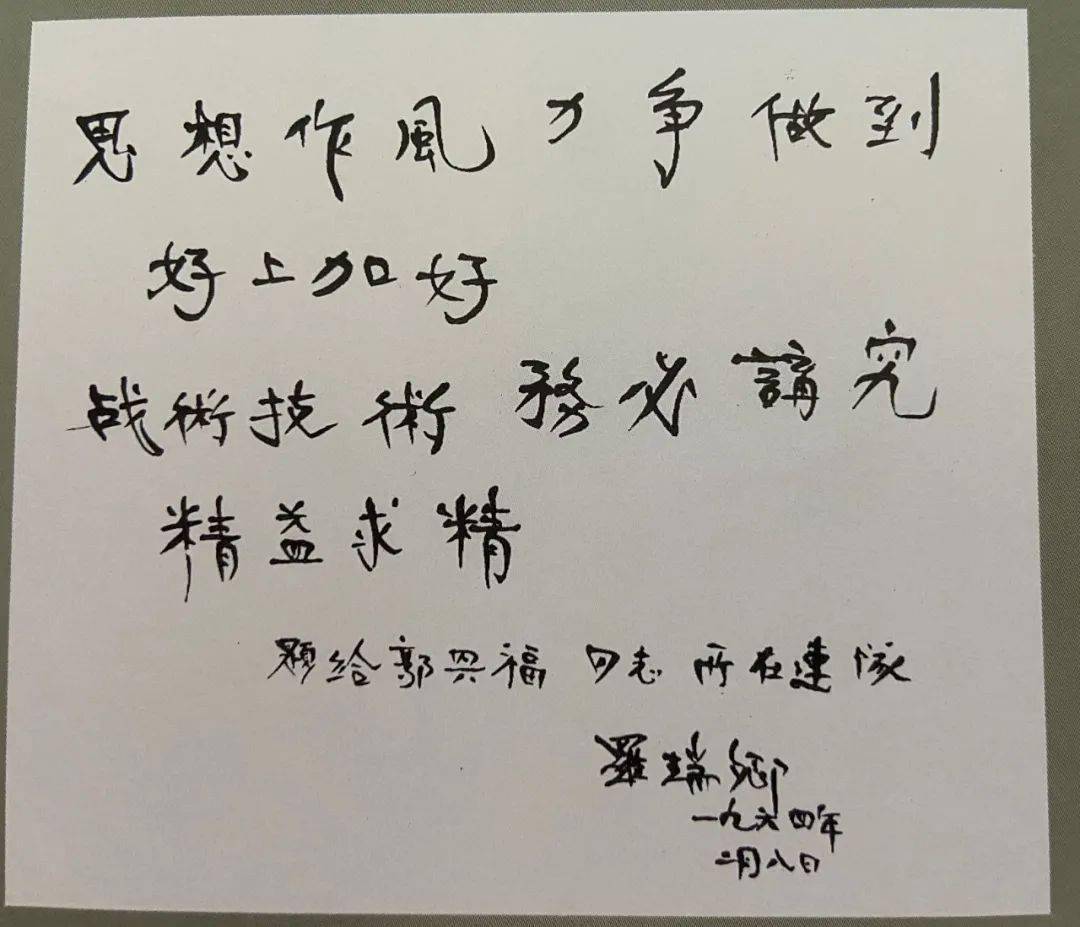 思想作風力争做到
好上加好
战術技術務必講究
精益求精
题給郭兴福同志所在連隊
羅瑞卿
一九六四年
二月八日